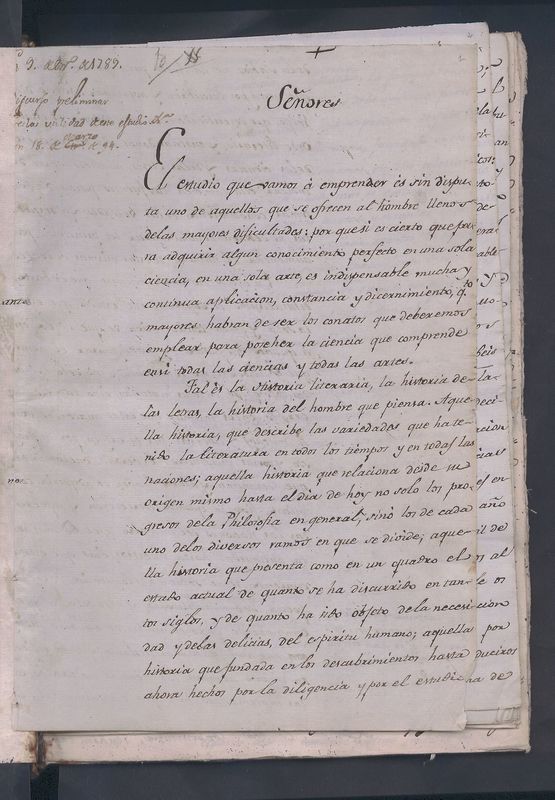 9. de 1789.
10/11
Discurso preliminar
utilidad de este estudio
en 18. de Março de 94.
Señores
El estudio que vamos à emprender es sin dispu-
ta uno de aquellos que se ofrecen al hombre llenos
delas mayores dificultades: por que si es cierto que pa-
ra adquirir algun conocimiento perfecto en una sola
ciencia, en una sola arte, es indispensable mucha y
continua aplicacion, constancia y dicernimiento, qto
mayores habran de ser los conatos que deberemos
emplear para poseher la ciencia que comprende
casi todas las ciencias y todas las artes.
Tal és la Historia literaria, la historia de
las letras, la historia del hombre que piensa. Aque-
lla historia, que describe las variedades que ha te-
nido la literatura en todos los tiempos y en todas las
naciones; aquella historia que relaciona desde su
origen mismo hasta el dia de hoy no solo los pro-
gresos dela Philosofia en general, sino los de cada
uno delos diversos ramos en que se divide; aque-
lla historia que presenta como en un quadro el
estado actual de quanto se ha discurrido en tan-
tos siglos, y de quanto ha sido objeto de la necesi-
dad y delas delicias, del espiritu humano; aquella
historia que fundada en los descubrimientos hasta
ahora hechos por la diligencia y por el estudio